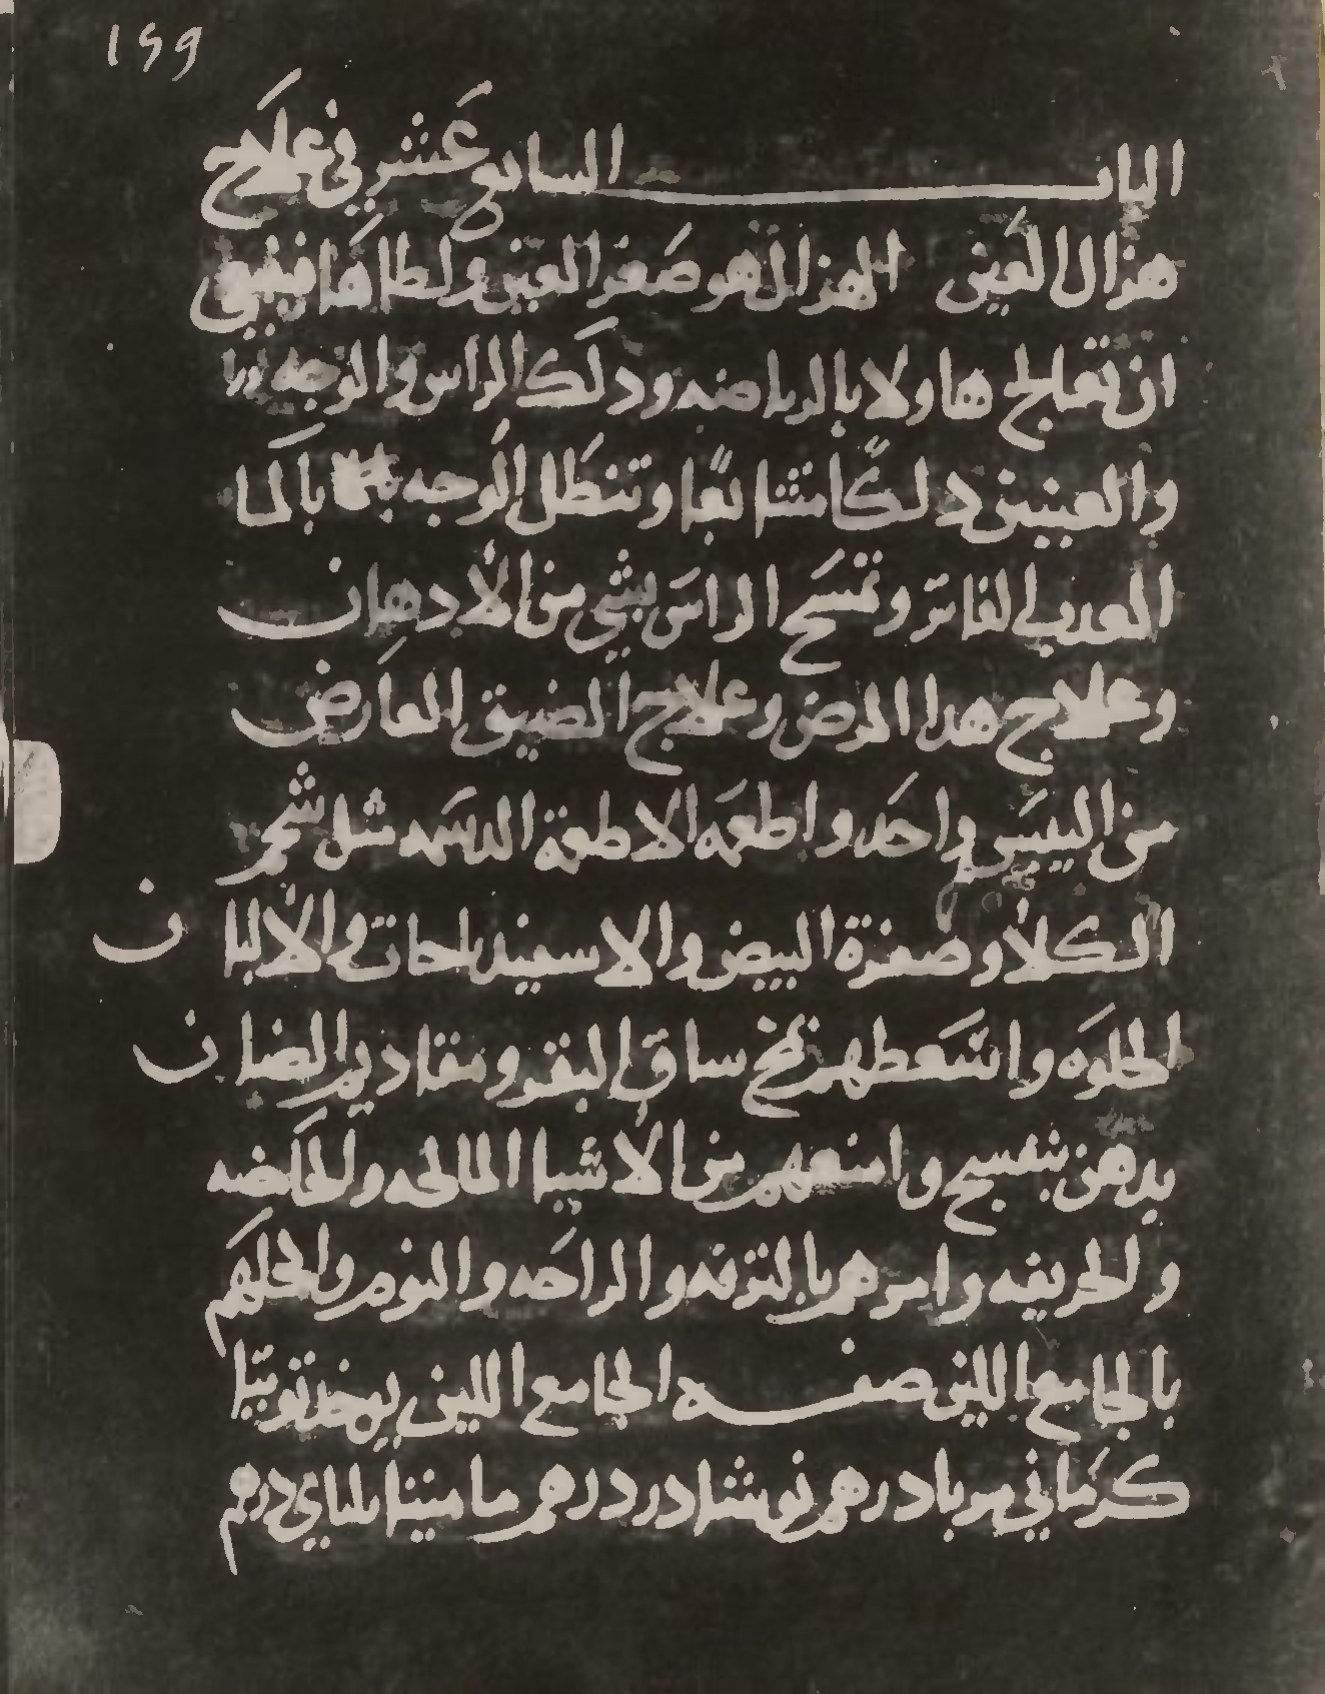 ١٥٩
الباب السابع عشر في علاج
هزال العين الهزال هو صغر العين ولطاها فينبغي
ان تعالج هاولا بالرياضه ودلك الراس والوجه
والعينين دلكًا متتابعًا وتنطل الوجه بالما
العدب الفاتر وتمسح الراس بشي من الأدهان
وعلاج هدا المرض وعلاج الضيق العارض
من اليبس واحد واطعمه الاطعمة الدسمه مثل شحم
الكلا وصفرة البيض والاسفيدباجات والالبان
الحلوه واسعطهم بمخ ساق البقر ومقاديم الضان
بدهن بنفسج وامنعهم من الاشيا المالحه والحامضه
والحريفه وامرهم بالترفه والراحه والنوم واكحلهم
بالجامع اللين صفه الجامع اللين يوخد توتيا
كرماني مربا درهم نوشادر درهم مامیتا درهم